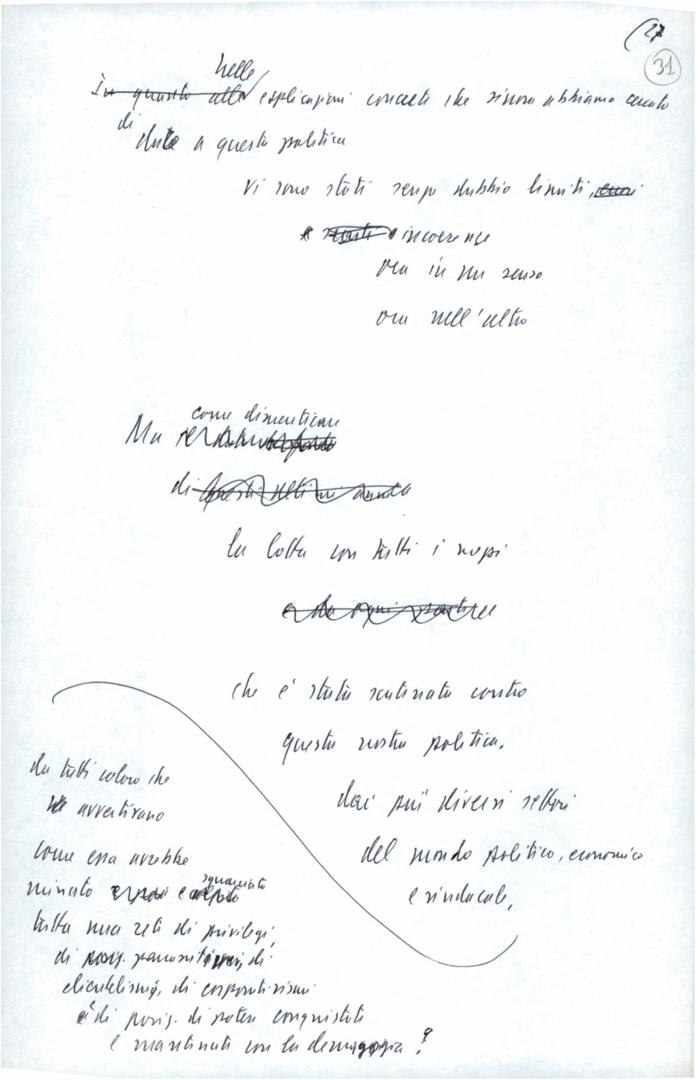 27
31
nelle
In quanto alle esplicazioni concrete che sinora abbiamo cercato
di
dare a questa politica
vi sono stati senza dubbio limiti,
e incoerenze
ora in un senso
ora nell'altro
come dimenticare
Ma
di questi ultimi
la lotta con tutti i mezzi
che è stata scatenata contro
questa nostra politica.
dai più diversi settori
del mondo politico, economico
e sindacale,
da tutti coloro che
avvertivano
come essa avrebbe
squassato
minato e
tutta una rete di privilegi,
di posiz. parassitarie, di
clientelismi, di corporativismi
e di posiz. di potere conquistate
e mantenute con la demagogia?